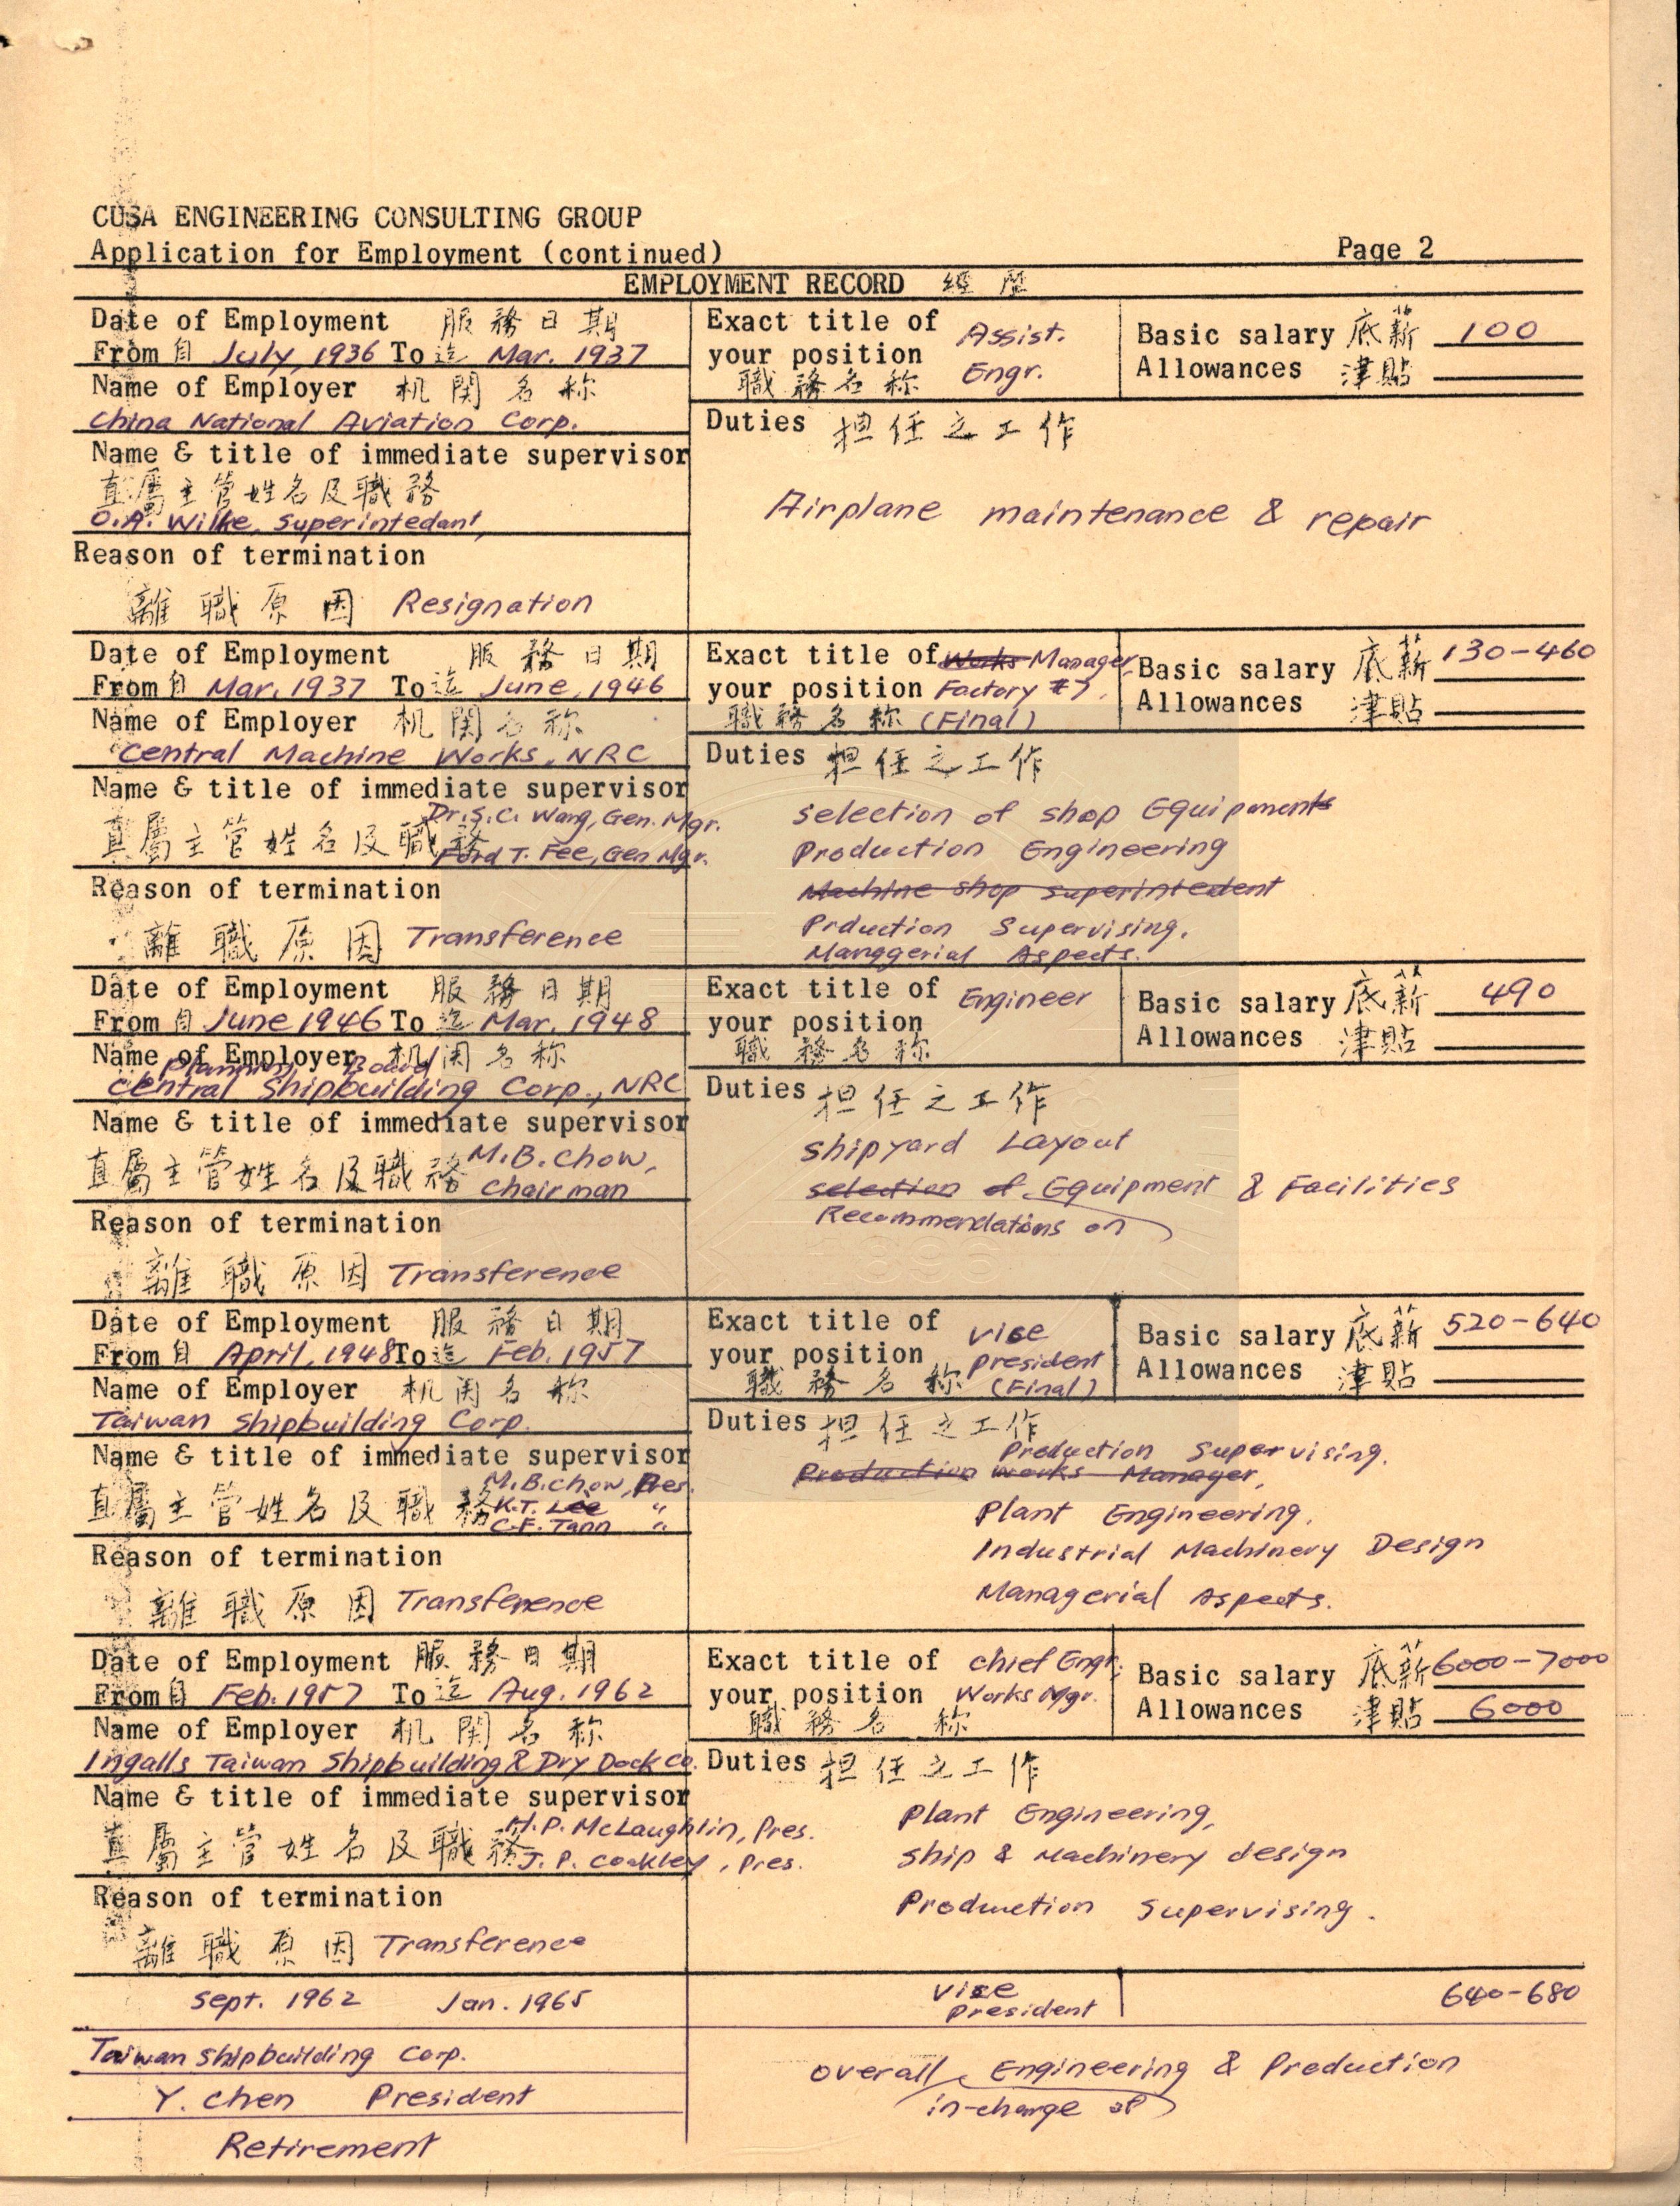 CUSA ENGINEERING CONSULTING GROUP
Application for Employment (continued) Page 2
EMPLOYMENT RECORD 經歷
Date of Employment 服務日期
From自 July, 1936 To迄 Mar. 1937
Name of Employer 机関名称
China National Aviation Corp.
Name & title of immediate supervisor
直屬主管姓名及職務
O.A. Wilke, Superintedant,
Reason of termination
離職原因 Resignation
Exact title of Assist.
your position Engr.
職務名称
Basic salary 底薪 100
Allowances 津貼
Duties 担任之工作
Airplane maintenance & repair
Date of Employment 服務日期
From自 Mar. 1937 To迄 June, 1946
Name of Employer 机関名称
Central Machine Works, NRC
Name & title of immediate supervisor
Dr. S.C. Wang, Gen. Mgr.
直屬主管姓名及職務
Ford T. Fee, Gen Mgr.
Reason of termination
離職原因 Transference
Exact title of Works Manager,
your position Factory #7,
職務名称 (Final)
Basic salary 底薪 130-460
Allowances 津貼
Duties 担任之工作
Selection of shop Equipments
Production Engineering
Machine shop superintedent
Prduction Supervising.
Manggerial Aspects.
Date of Employment 服務日期
From自 June 1946 To迄 Mar. 1948
Name of Employer 机関名称
Planning Board
Central Shipbuilding Corp., NRC
Name & title of immediate supervisor
直屬主管姓名及職務 M.B. Chow,
Chairman
Reason of termination
離職原因 Transference
Exact title of Engineer
your position
職務名称
Basic salary 底薪 490
Allowances 津貼
Duties 担任之工作
Shipyard Layout
selection of Equipment & Facilities
Recommendations on
Date of Employment 服務日期
From自 April, 1948 To迄 Feb. 1957
Name of Employer 机関名称
Taiwan Shipbuilding Corp.
Name & title of immediate supervisor
M.B. Chow, Pres.
直屬主管姓名及職務 K.T. Lee "
C.F. Tann "
Reason of termination
離職原因 Transference
Exact title of Vice
your position President
職務名称 (Final)
Basic salary 底薪 520-640
Allowances 津貼
Duties 担任之工作
Production Supervising.
Production Works Manager,
Plant Engineering,
Industrial Machinery Design
Managerial Aspects.
Date of Employment 服務日期
From自 Feb. 1957 To迄 Aug. 1962
Name of Employer 机関名称
Ingalls Taiwan Shipbuilding & Dry Dock Co.
Name & title of immediate supervisor
H.P. McLaughlin, Pres.
直屬主管姓名及職務
J.P. Coakley, Pres.
Reason of termination
離職原因 Transference
Exact title of Chief Engr.
your position Works Mgr.
職務名称
Basic salary 底薪 6000-7000
Allowances 津貼 6000
Duties 担任之工作
Plant Engineering,
Ship & Machinery design
Production Supervising.
Sept. 1962 Jan. 1965
Taiwan Shipbuilding Corp.
Y. Chen President
Retirement
Vice
President
640-680
Overall Engineering & Production
in-charge of